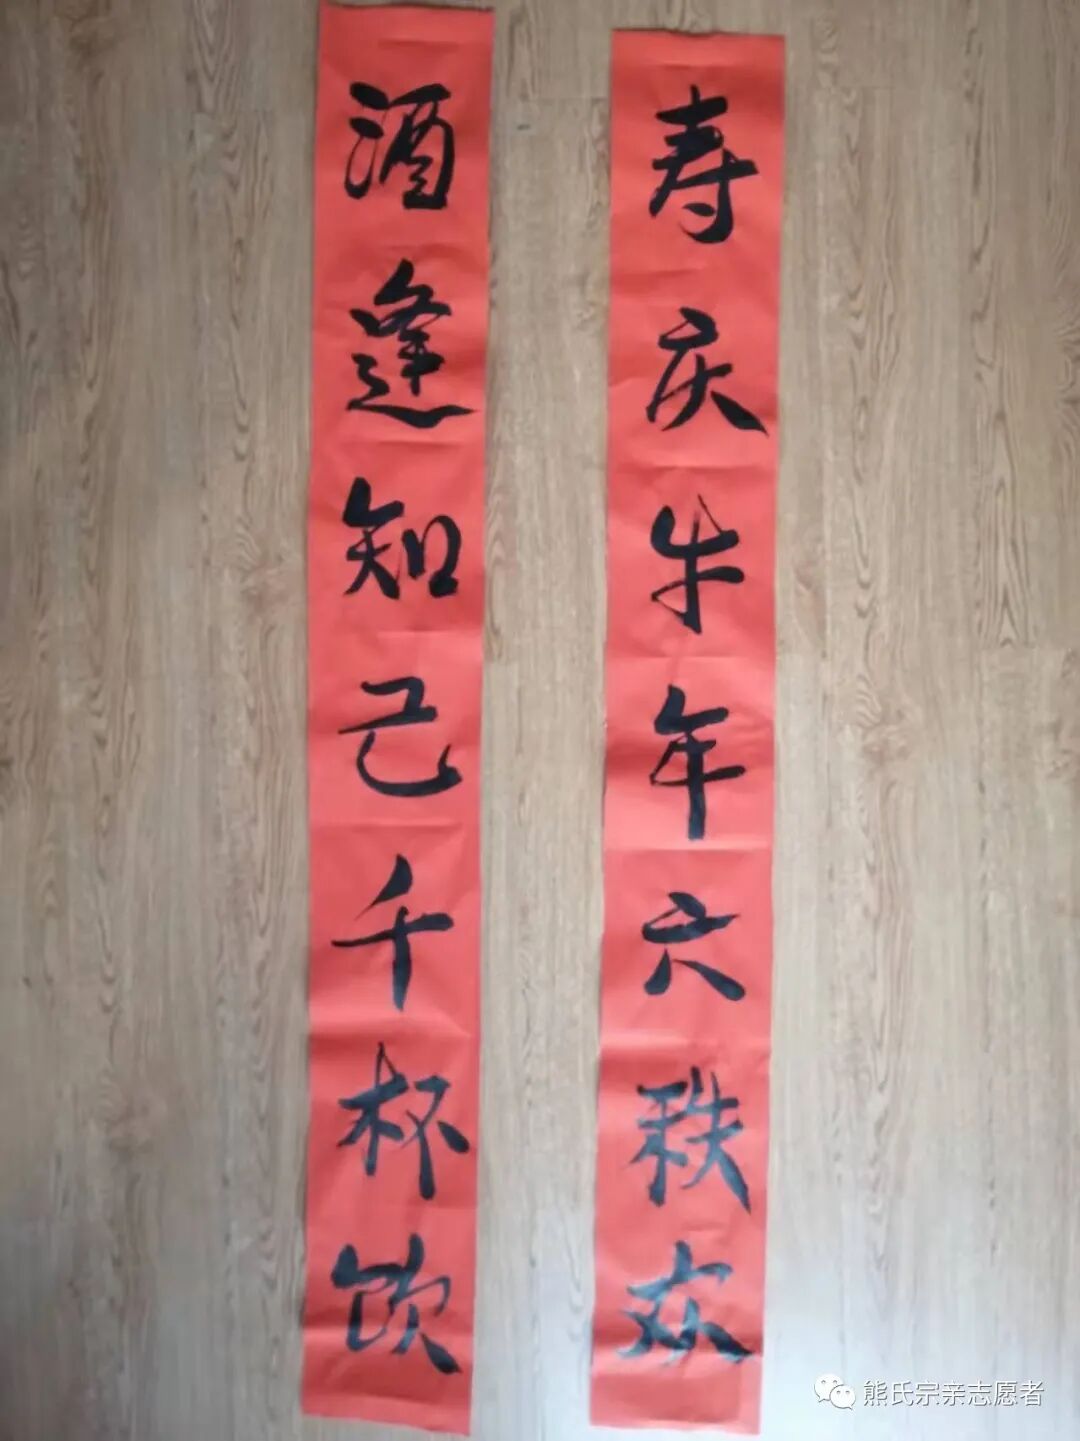 酒逢知己千杯饮
寿庆牛年六秩欢
熊氏宗亲志愿者